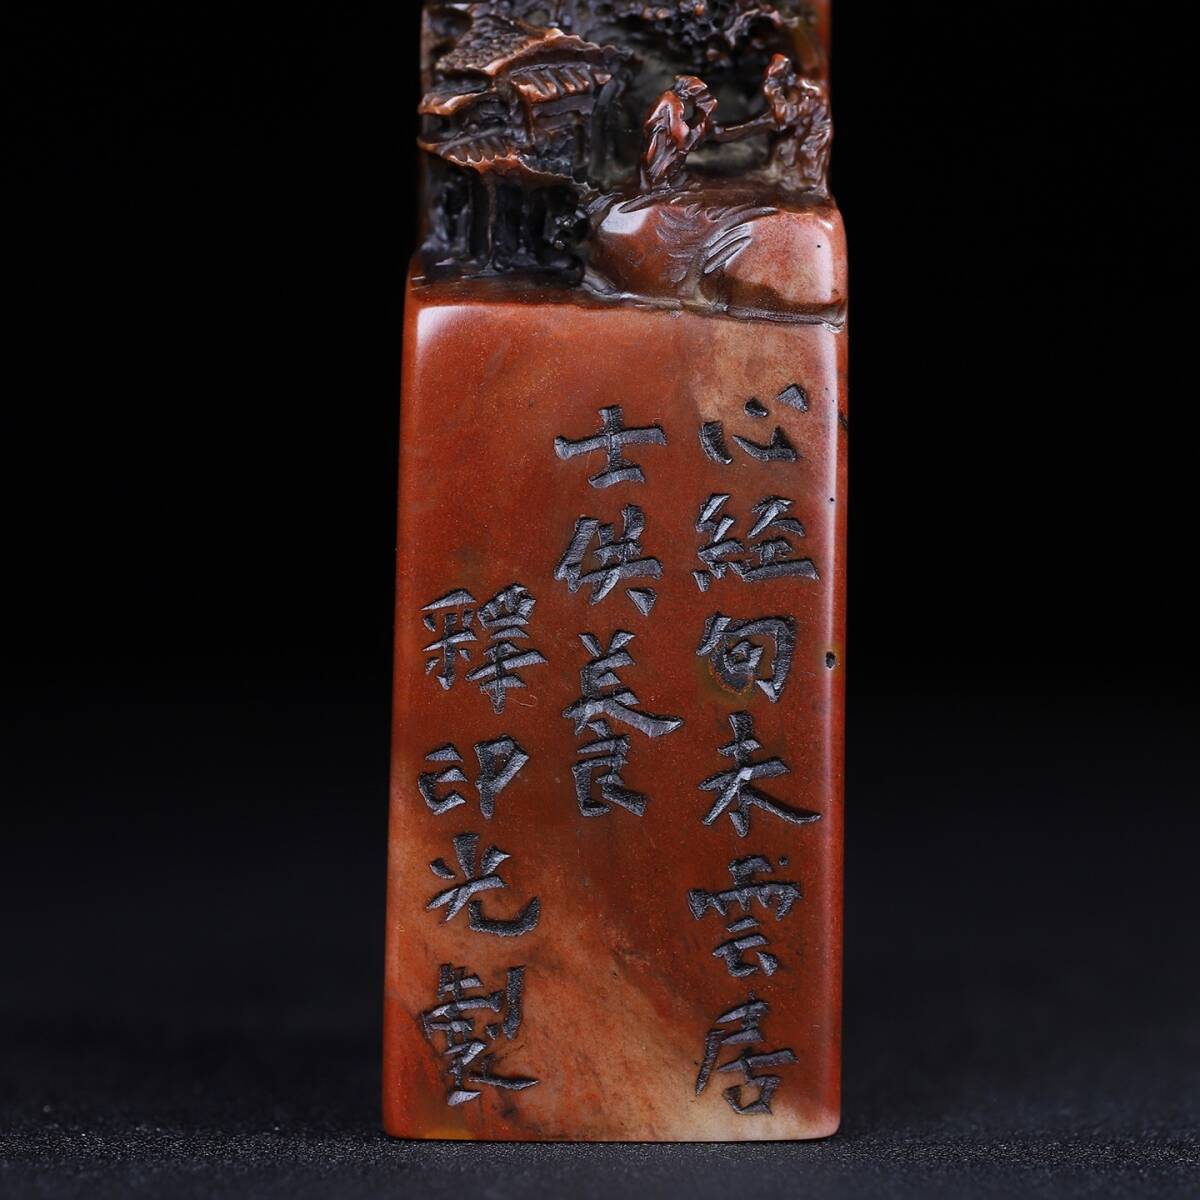 心經句未雲居
士供養
釋印光製